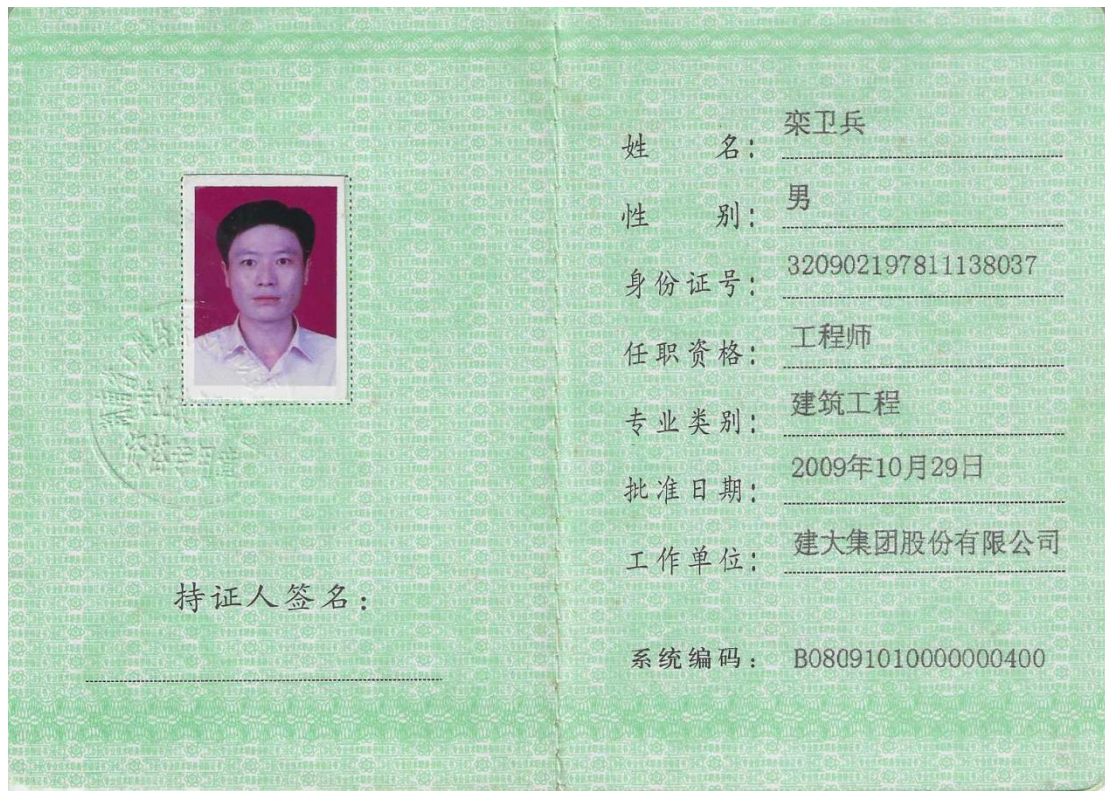 持证人签名：
姓 名： 栾卫兵
性 别： 男
身份证号： 320902197811138037
任职资格： 工程师
专业类别： 建筑工程
批准日期： 2009年10月29日
工作单位： 建大集团股份有限公司
系统编码： B08091010000000400